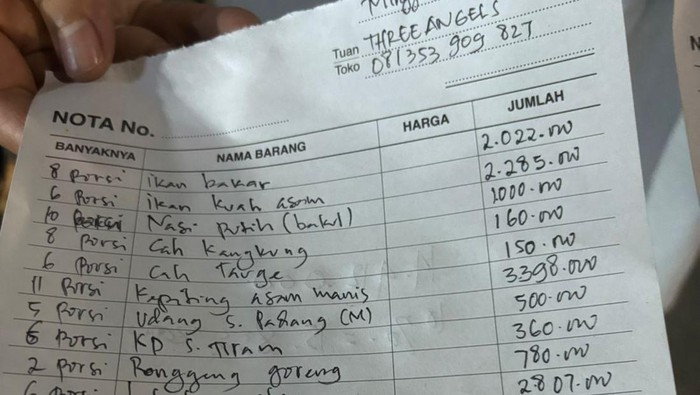 Tuan THREE ANGELS
Toko 081353 909 827
NOTA No.
BANYAKNYA NAMA BARANG HARGA JUMLAH
8 Porsi ikan bakar 2.022.000
6 Porsi ikan kuah asam 2.285.000
10 Nasi putih (bakul) 1000.000
8 Porsi Cah Kangkung 160.000
6 Porsi Cah Tauge 150.000
11 Porsi Kepiting asam manis 3398.000
5 Porsi Udang S. Padang (M) 500.000
6 Porsi KP S. Tiram 360.000
2 Porsi Ronggeng goreng 780.000
6 Porsi 2.807.000